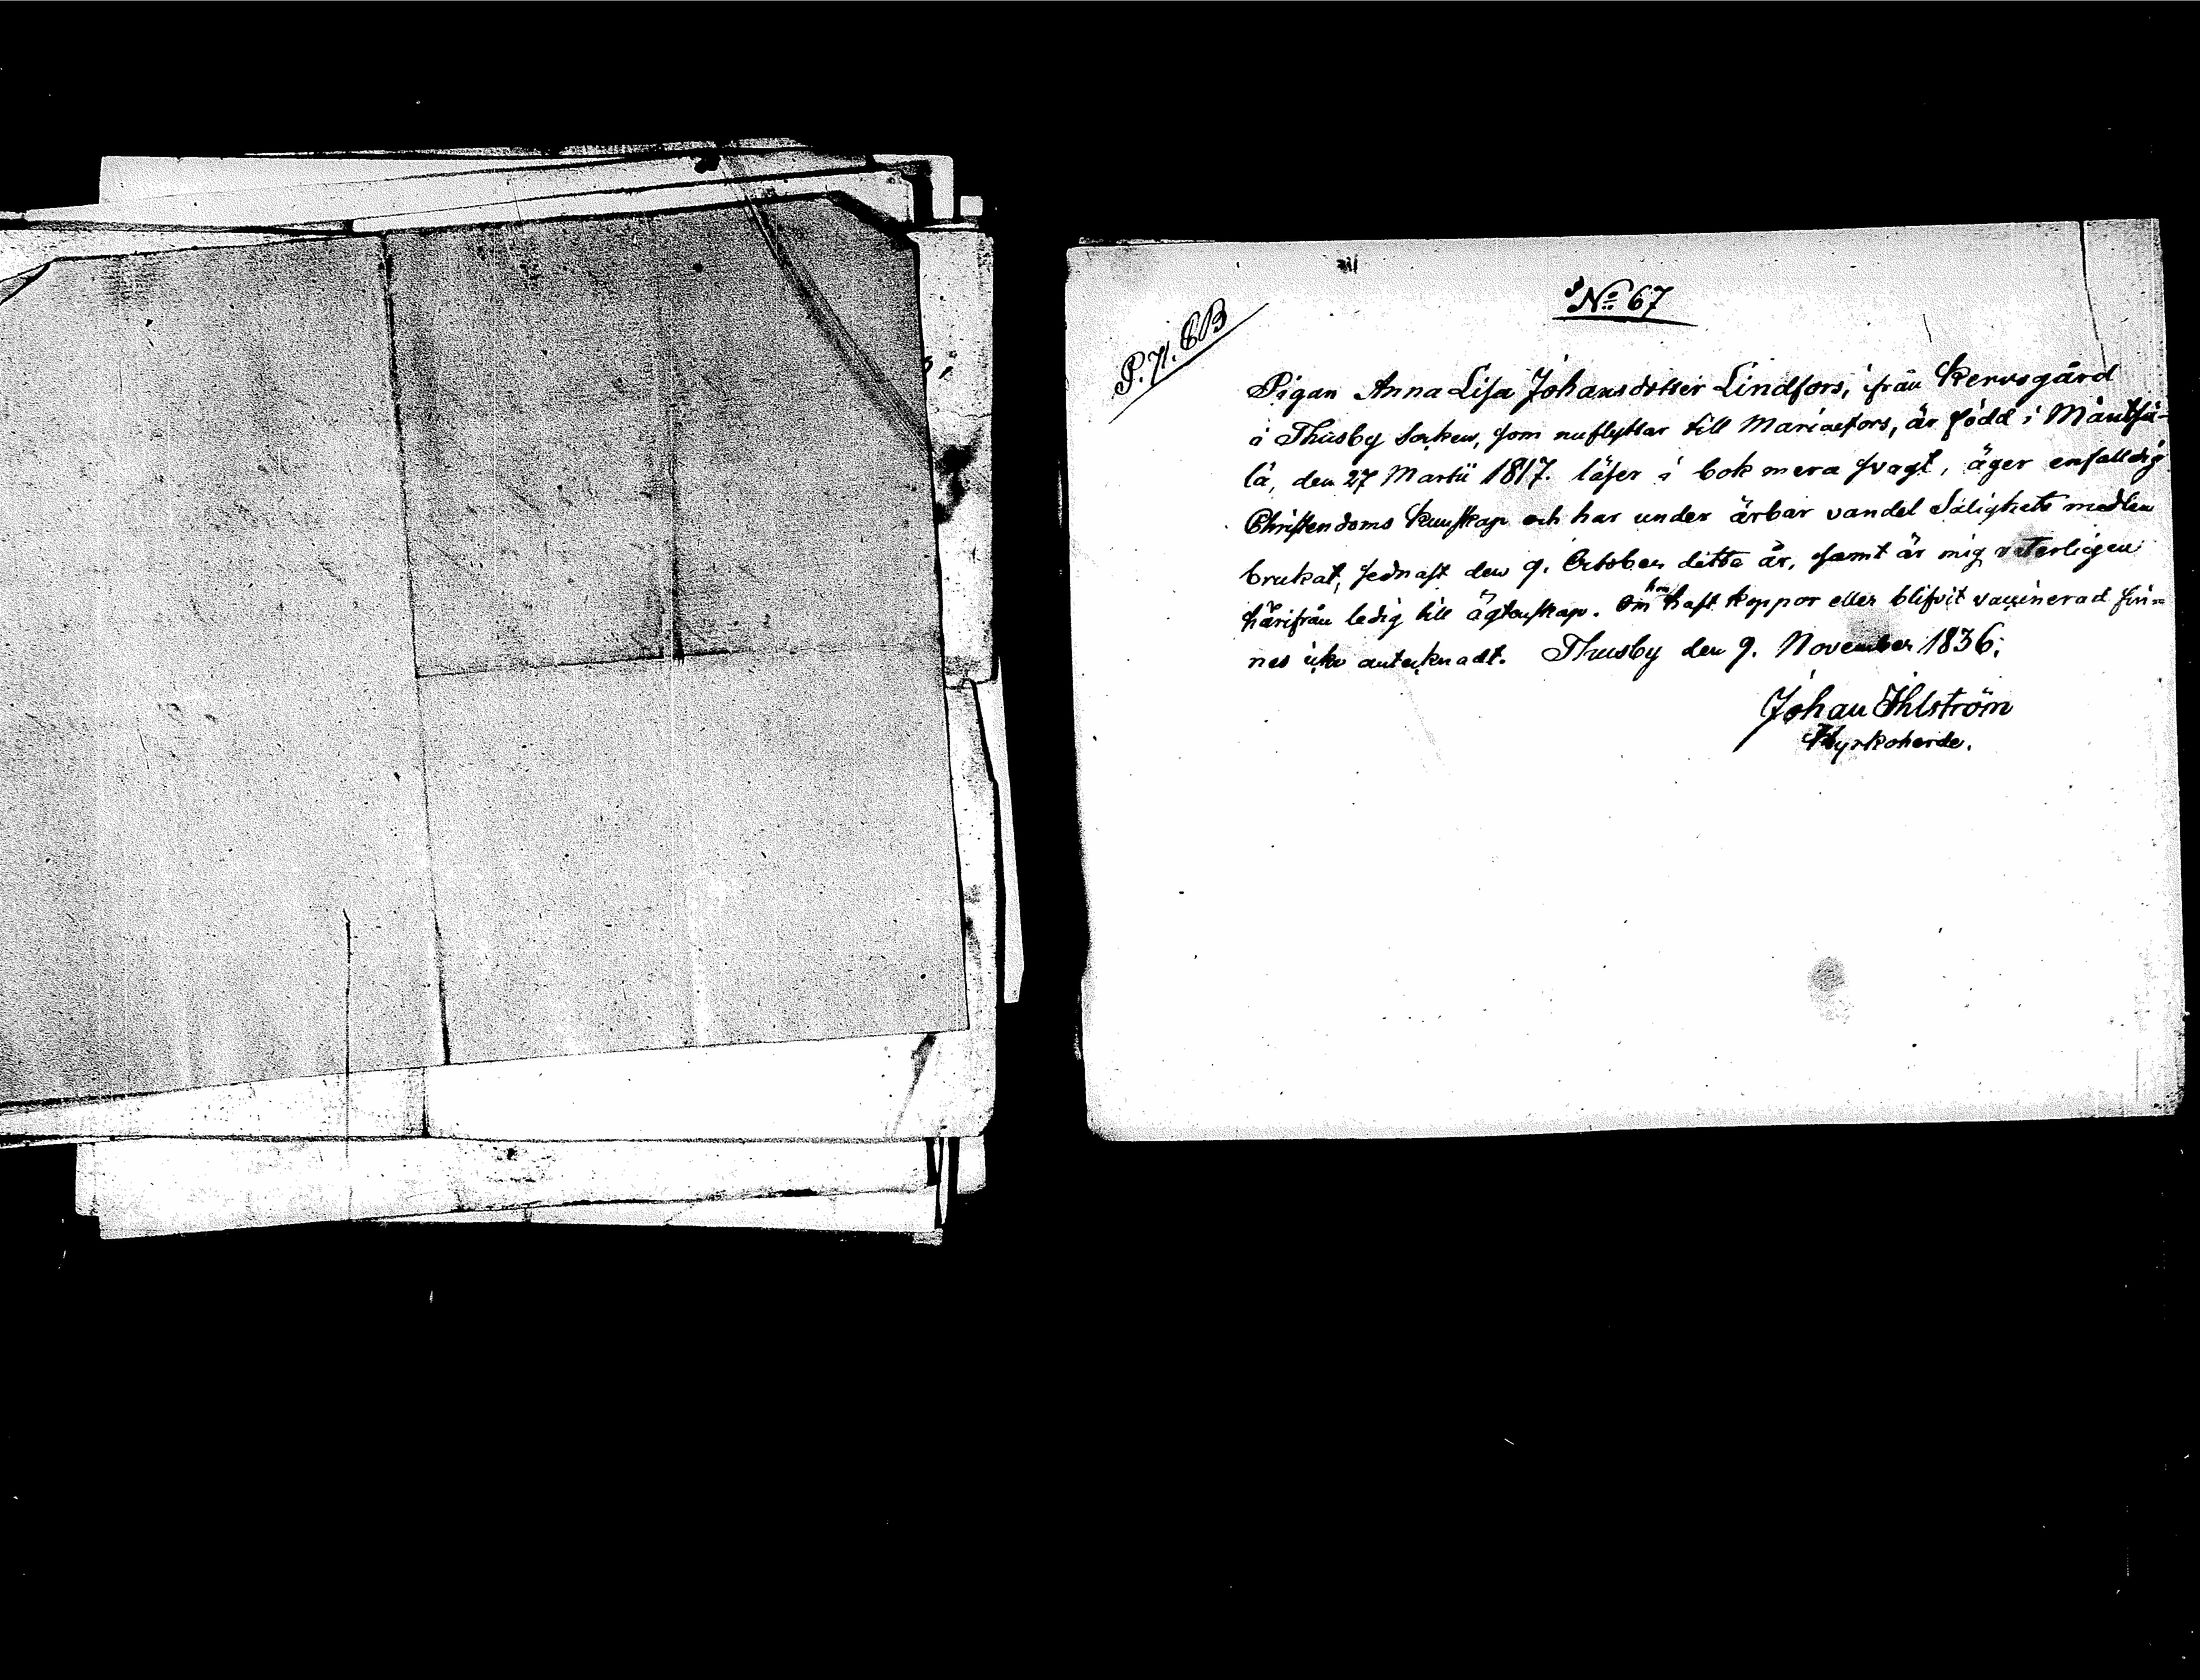 No 67
P. 71. CB
Pigan Anna Lisa Johansdotter Lindfors, från Kervogård
i Thusby Socken, som nu flyttar till Mariaefors, är född i Mäntsä-
lä, den 27 Martii 1817. läser i bok mera svagt, äger enfalldig
Christendoms kunskap och har under ärbar vandel Salighets medlen
brukat, sednast den 9. October detta år, samt är mig veterligen
härifrån ledig till ägtenskap. Om hon haft koppor eller blifvit vaccinerad fin-
nes icke antecknadt. Thusby den 9. November 1836.
Johan Ihlström
Kyrkoherde.